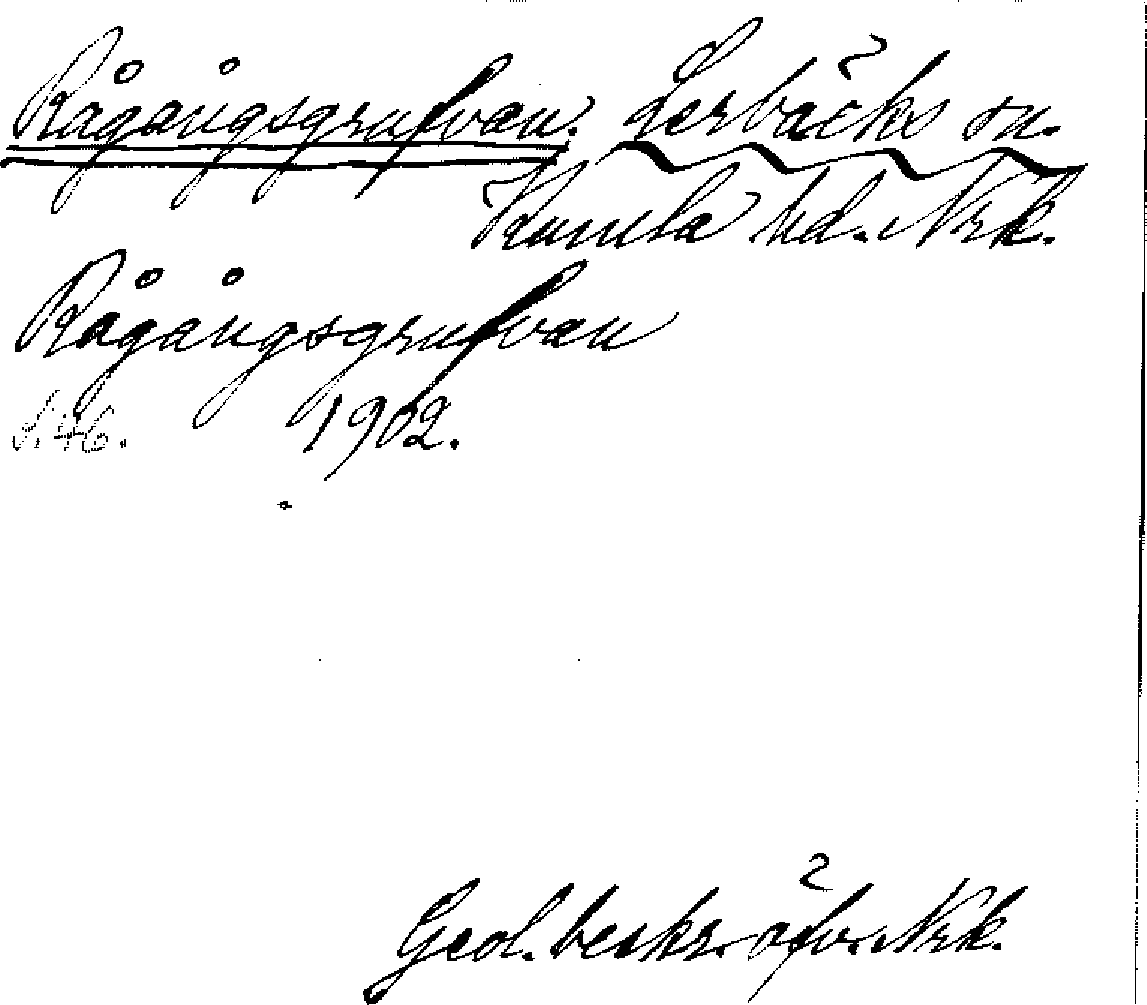 Rågångsgrufvan. Lerbäcks sn.
Kumla hd. Nrk.
Rågångsgrufvan
S. 46. 1902.
Geol. beskr. öfv. Nrk.